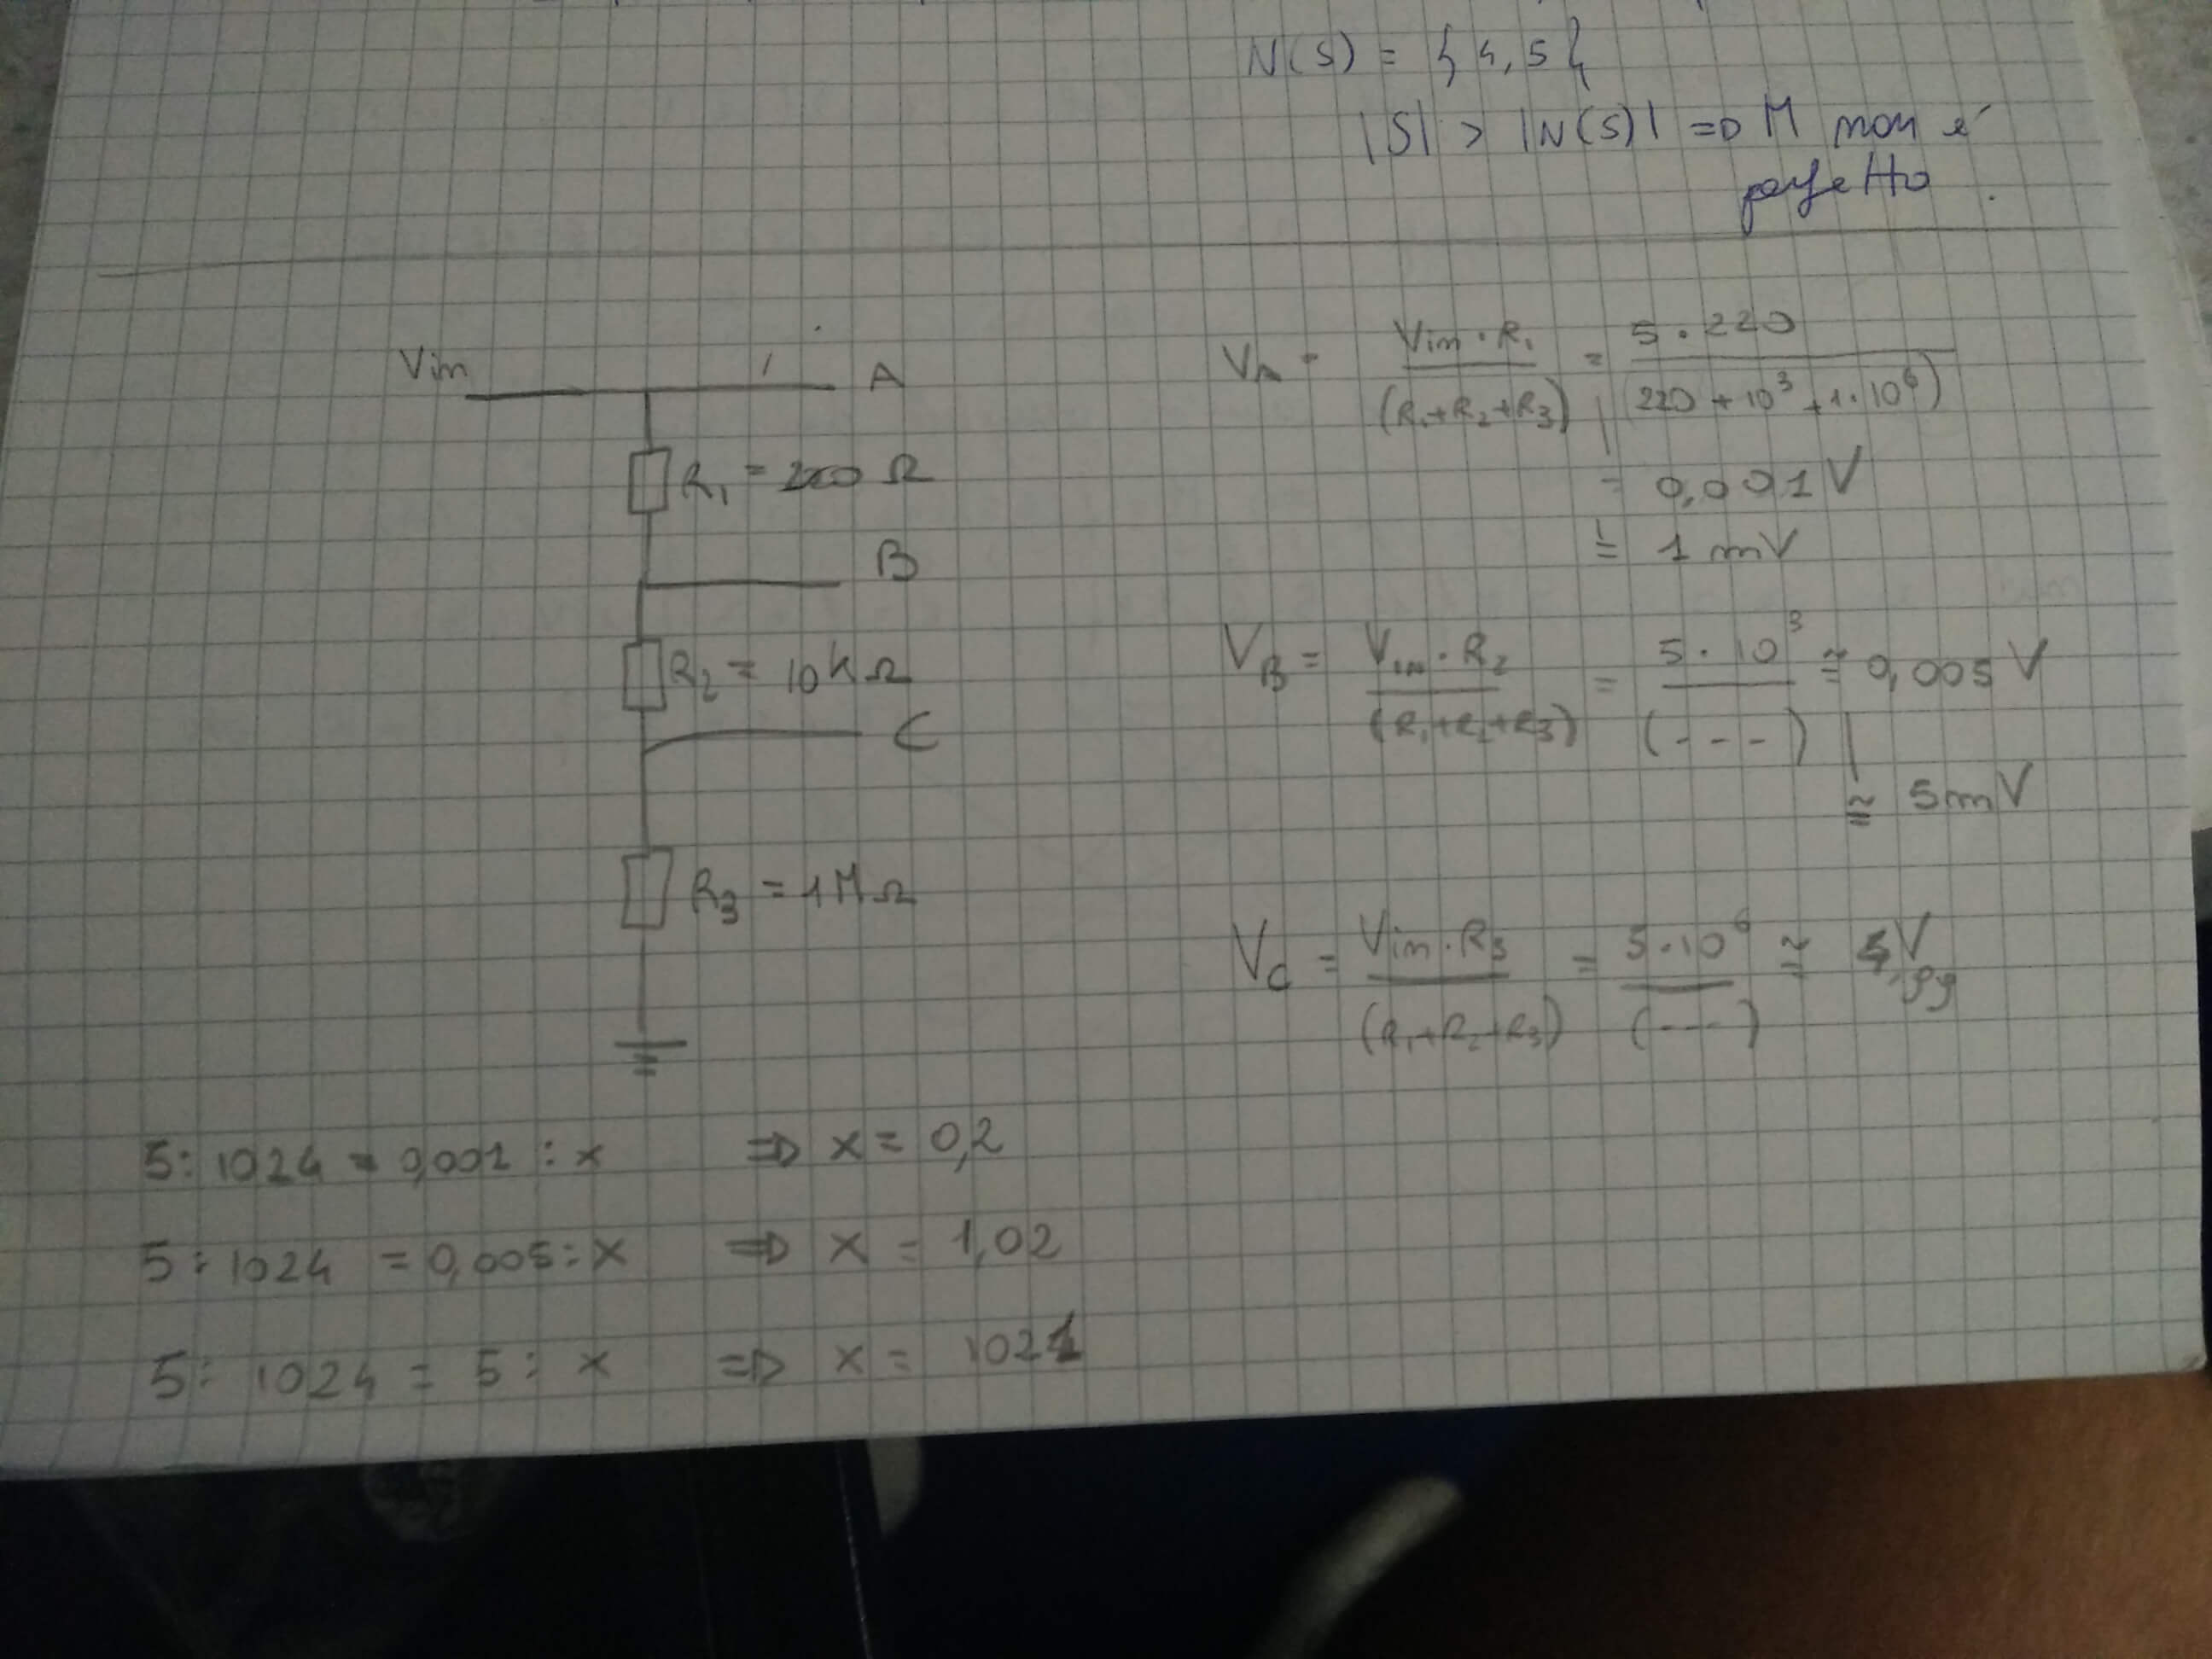 N(S) = { 4, 5 }
|S| > |N(S)| => M non è
perfetto.
Vin A
R1 = 220 Ω
B
R2 = 10kΩ
C
R3 = 1MΩ
VA = Vin · R1 / (R1+R2+R3) = 5 · 220 / (220 + 10^3 + 1·10^6)
= 0,001 V
≅ 1 mV
VB = Vin · R2 / (R1+R2+R3) = 5 · 10^3 / (---) ≅ 0,005 V
≅ 5mV
VC = Vin · R3 / (R1+R2+R3) = 5·10^6 / (---) ≅ 4,99 V
5 : 1024 = 0,001 : x => x = 0,2
5 : 1024 = 0,005 : x => x = 1,02
5 : 1024 = 5 : x => x = 1021